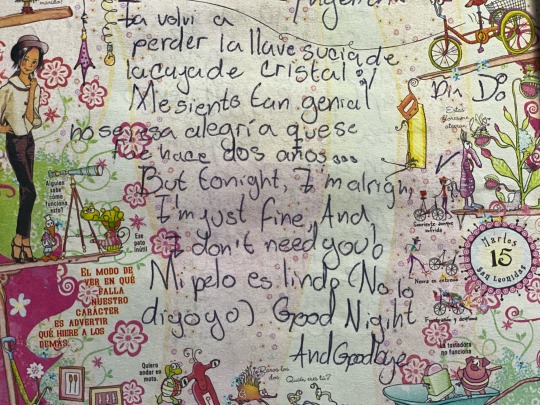 Ya volvi a
perder la llave sucia de
la caja de cristal :/
Me siento tan genial
no se si esa alegría que se
fue hace dos años...
But tonight, I'm alrigh,
I'm just fine, And
I don't need you
Mi pelo es lindo (No lo
digo yo) Good Night
And Goodbye
Alguien
sabe
cómo
funciona
esto?
Ese
pato
inútil
EL MODO DE
VER EN QUÉ
FALLA
NUESTRO
CARÁCTER
ES ADVERTIR
QUÉ HIERE A LOS
DEMÁS.
Quiero
andar en
moto.
Martes
15
San Leonidas
La tostadora
no funciona